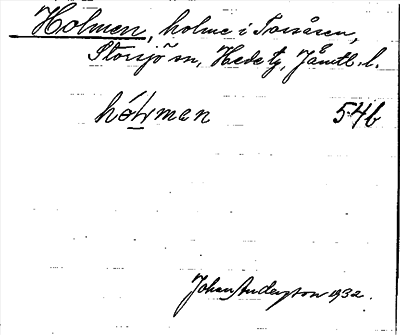 Holmen, holme i Torsåsen,
Storsjö sn, Hede tg, Jämtl. l.
hó̱lmen 54b
Johan Anderson 1932.